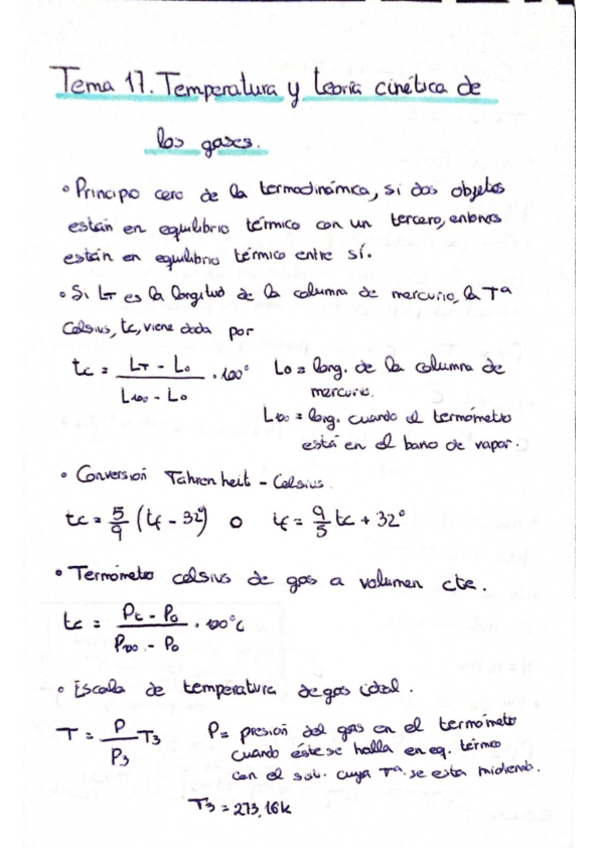 Tema 17. Temperatura y teoría cinética de
los gases.
• Principio cero de la termodinámica, si dos objetos
están en equilibrio térmico con un tercero, entonces
están en equilibrio térmico entre sí.
• Si LT es la longitud de la columna de mercurio, la Tª
Celsius, tc, viene dada por
tc = (LT - L0) / (L100 - L0) · 100° L0 = long. de la columna de
mercurio.
L100 = long. cuando el termómetro
está en el bano de vapor.
• Conversión Fahrenheit - Celsius.
tc = 5/9 (tf - 32°) o tf = 9/5 tc + 32°
• Termómetro celsius de gas a volumen cte.
tc = (Pt - P0) / (P100 - P0) · 100°C
• Escala de temperatura de gas ideal.
T = P/P3 T3 P = presión del gas en el termómetro
cuando éste se halla en eq. térmo
con el sist. cuya Tª. se esta midiendo.
T3 = 273,16k